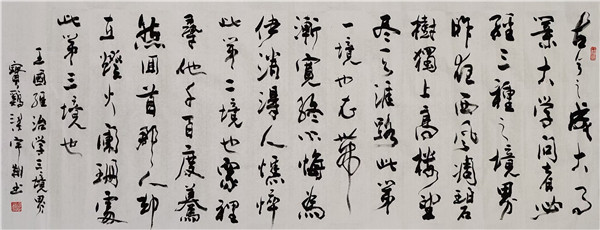 古今之成大事
業大学問者必
經三種之境界
昨夜西風凋碧
樹獨上高樓望
盡天涯路此第
一境也衣帶
漸寬終不悔為
伊消得人憔悴
此第二境也眾裡
尋他千百度驀
然回首那人却
在燈火闌珊處
此第三境也
王國維治学三境界
寶雞書